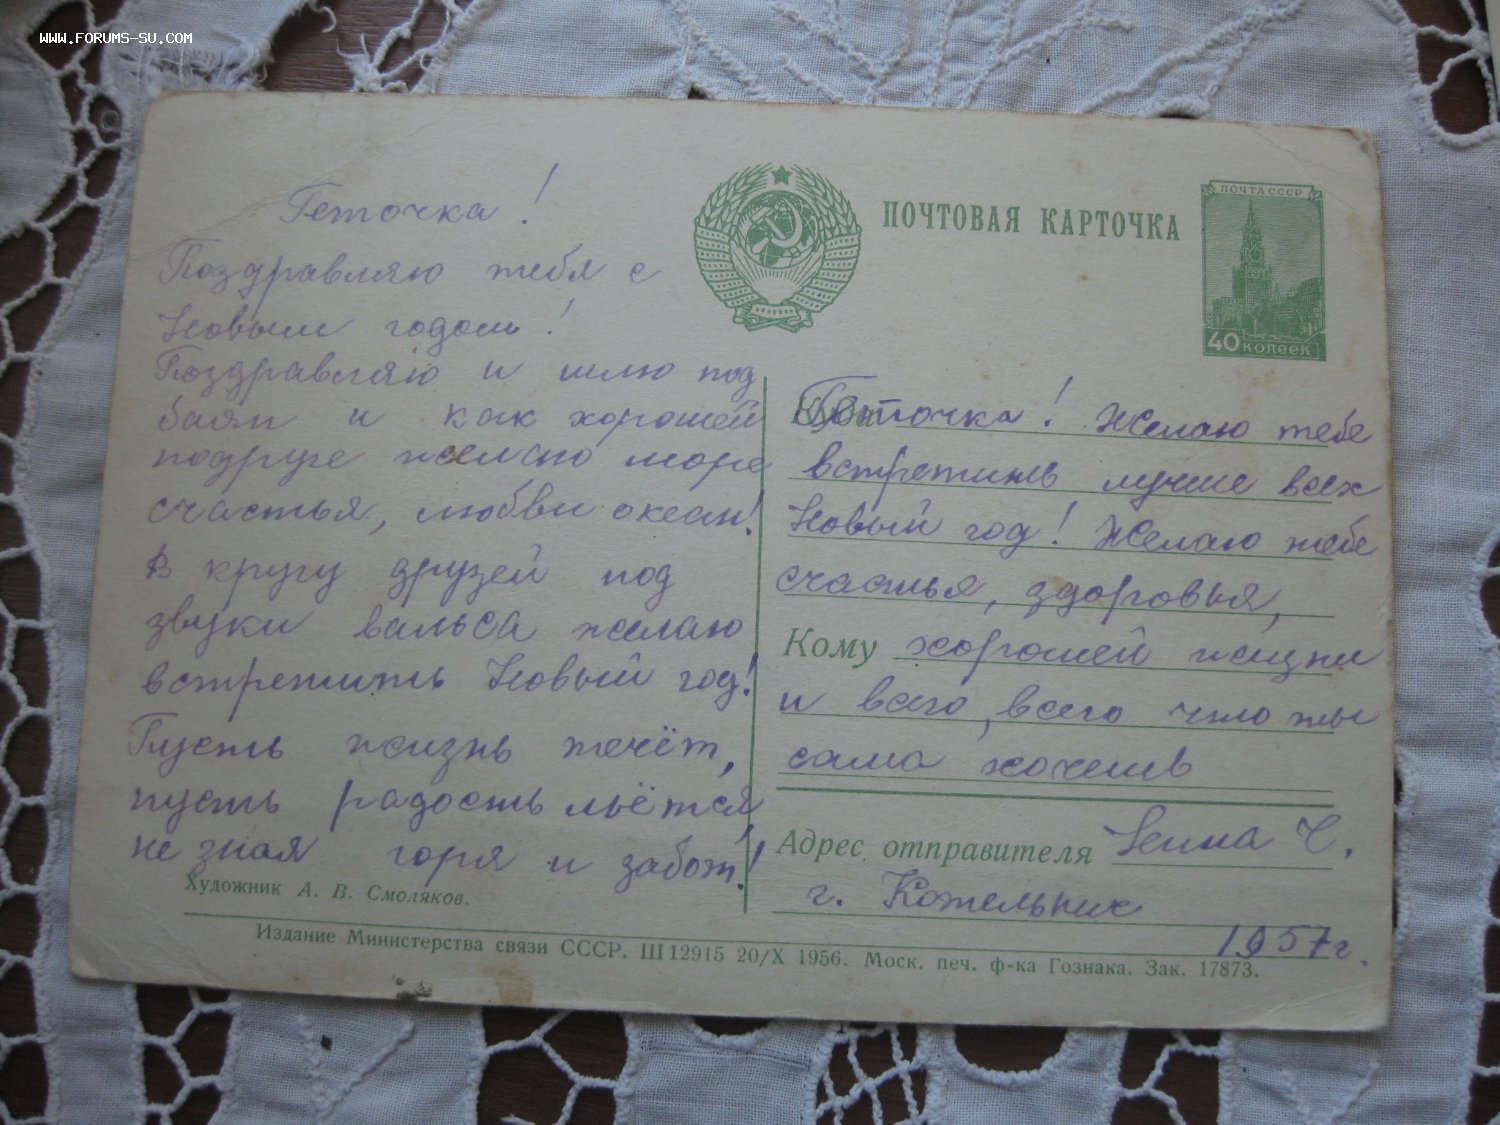 WWW.FORUMS-SU.COM
Геточка!
Поздравляю тебя с
Новым годом!
Поздравляю и шлю под
баян и как хорошей
подруге желаю море
счастья, любви океан!
В кругу друзей под
звуки вальса желаю
встретить Новый год!
Пусть жизнь течёт,
пусть радость льётся,
не зная горя и забот!
Художник А. В. Смоляков.
ПОЧТОВАЯ КАРТОЧКА
ПОЧТА СССР
40 КОПЕЕК
Куда Геточка! Желаю тебе
встретить лучше всех
Новый год! Желаю тебе
счастья, здоровья,
Кому хорошей жизни
и всего, всего чего ты
сама хочешь
Адрес отправителя Нина Ч.
г. Котельнич
1957г.
Издание Министерства связи СССР. Ш 12915 20/X 1956. Моск. печ. ф-ка Гознака. Зак. 17873.